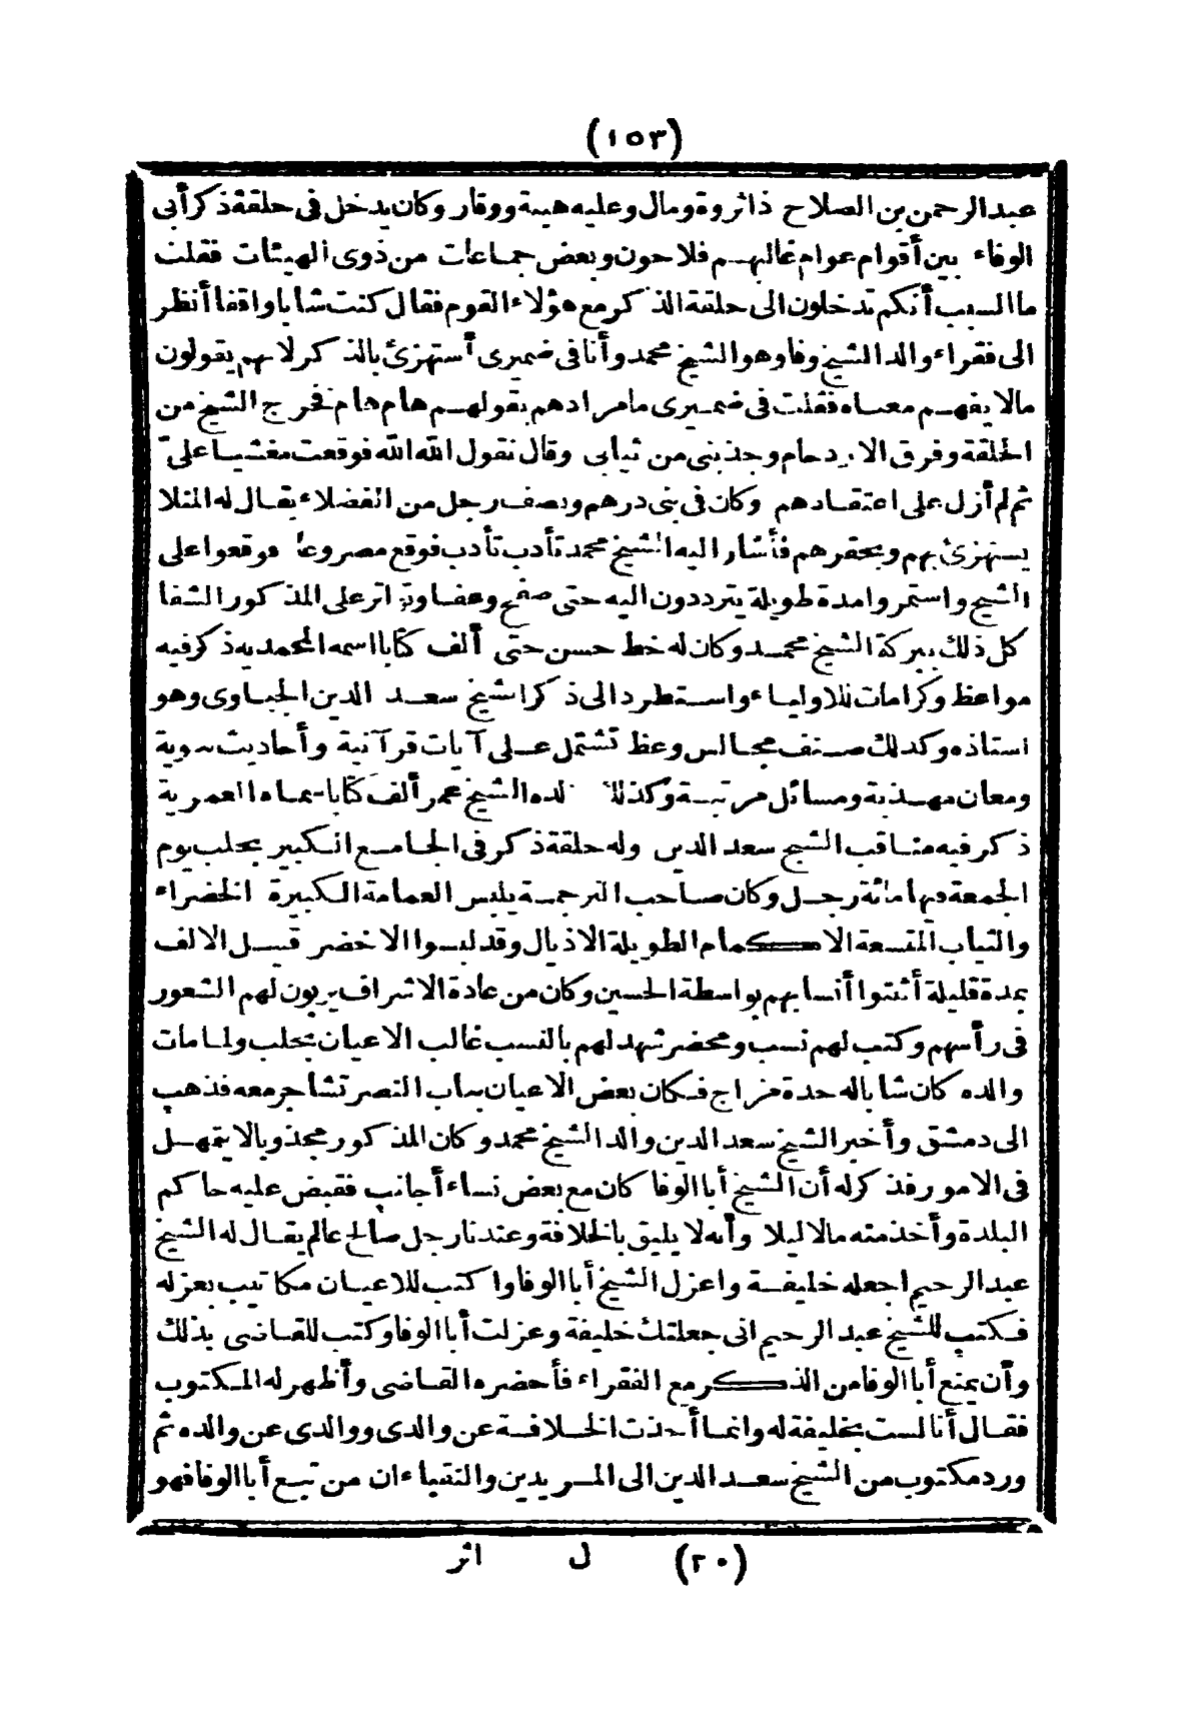 (١٥٣)
عبد الرحمن بن الصلاح ذا ثروة ومال وعليه هيبة ووقار وكان يدخل فى حلقة ذكر أبى
الوفاء بين أقوام عوام غالبهم فلاحون وبعض جماعات من ذوى الهيئات فقلت
ما السبب أنكم تدخلون الى حلقة الذكر مع هؤلاء القوم فقال كنت شابا واقفا أنظر
الى فقراء والد الشيخ وفا وهو الشيخ محمد وأنا فى ضميرى أستهزئ بالذكر لانهم يقولون
مالا يفهم معناه فقلت فى ضميرى ما مرادهم بقولهم هام هام فخرج الشيخ من
الحلقة وفرق الازدحام وجذبنى من ثيابى وقال نقول الله الله فوقعت مغشيا علىّ
ثم لم أزل على اعتقادهم وكان فى بنى درهم ونصف رجل من الفضلاء يقال له المنلا
يستهزئ بهم ويحقرهم فأشار اليه الشيخ محمد تأدب تأدب فوقع مصروعا فوقعوا على
الشيخ واستمروا مدة طويلة يترددون اليه حتى صفح وعفا وتواتر على المذكور الشفا
كل ذلك ببركة الشيخ محمد وكان له خط حسن حتى ألف كتابا اسمه المحمديه ذكر فيه
مواعظ وكرامات للاولياء واستطرد الى ذكر الشيخ سعد الدين الجباوى وهو
استاذه وكذلك صنف مجالس وعظ تشتمل على آيات قرآنية وأحاديث نبوية
ومعان مهذبة ومسائل مرتبة وكذلك والده الشيخ عمر ألف كتابا سماه العمرية
ذكر فيه مناقب الشيخ سعد الدين وله حلقة ذكر فى الجامع الكبير بحلب يوم
الجمعة فيها مائة رجل وكان صاحب الترجمة يلبس العمامة الكبيرة الخضراء
والثياب المتسعة الاكمام الطويلة الاذيال وقد لبسوا الاخضر قبل الالف
بمدة قليلة أثبتوا أنسابهم بواسطة الحسين وكان من عادة الاشراف يربون لهم الشعور
فى رأسهم وكتب لهم نسب ومحضر شهد لهم بالنسب غالب الاعيان بحلب ولما مات
والده كان شابا له حدة مزاج فكان بعض الاعيان بباب النصر تشاجر معه فذهب
الى دمشق وأخبر الشيخ سعد الدين والد الشيخ محمد وكان المذكور مجذوبا لا يتمهل
فى الامور فذكر له أن الشيخ أبا الوفا كان مع بعض نساء أجانب فقبض عليه حاكم
البلدة وأخذ منه مالا ليلا وأنه لا يليق بالخلافة وعندنا رجل صالح عالم يقال له الشيخ
عبد الرحيم اجعله خليفة واعزل الشيخ أبا الوفا واكتب للاعيان مكاتيب بعزله
فكتب للشيخ عبد الرحيم انى جعلتك خليفة وعزلت أبا الوفا وكتب للقاضى بذلك
وأن يمنع أبا الوفا من الذكر مع الفقراء فأحضره القاضى وأظهر له المكتوب
فقال أنا لست بخليفة له وانما أخذت الخلافة عن والدى ووالدى عن والده ثم
ورد مكتوب من الشيخ سعد الدين الى المريدين والنقباء ان من تبع أبا الوفا فهو
(٢٠) ل اثر